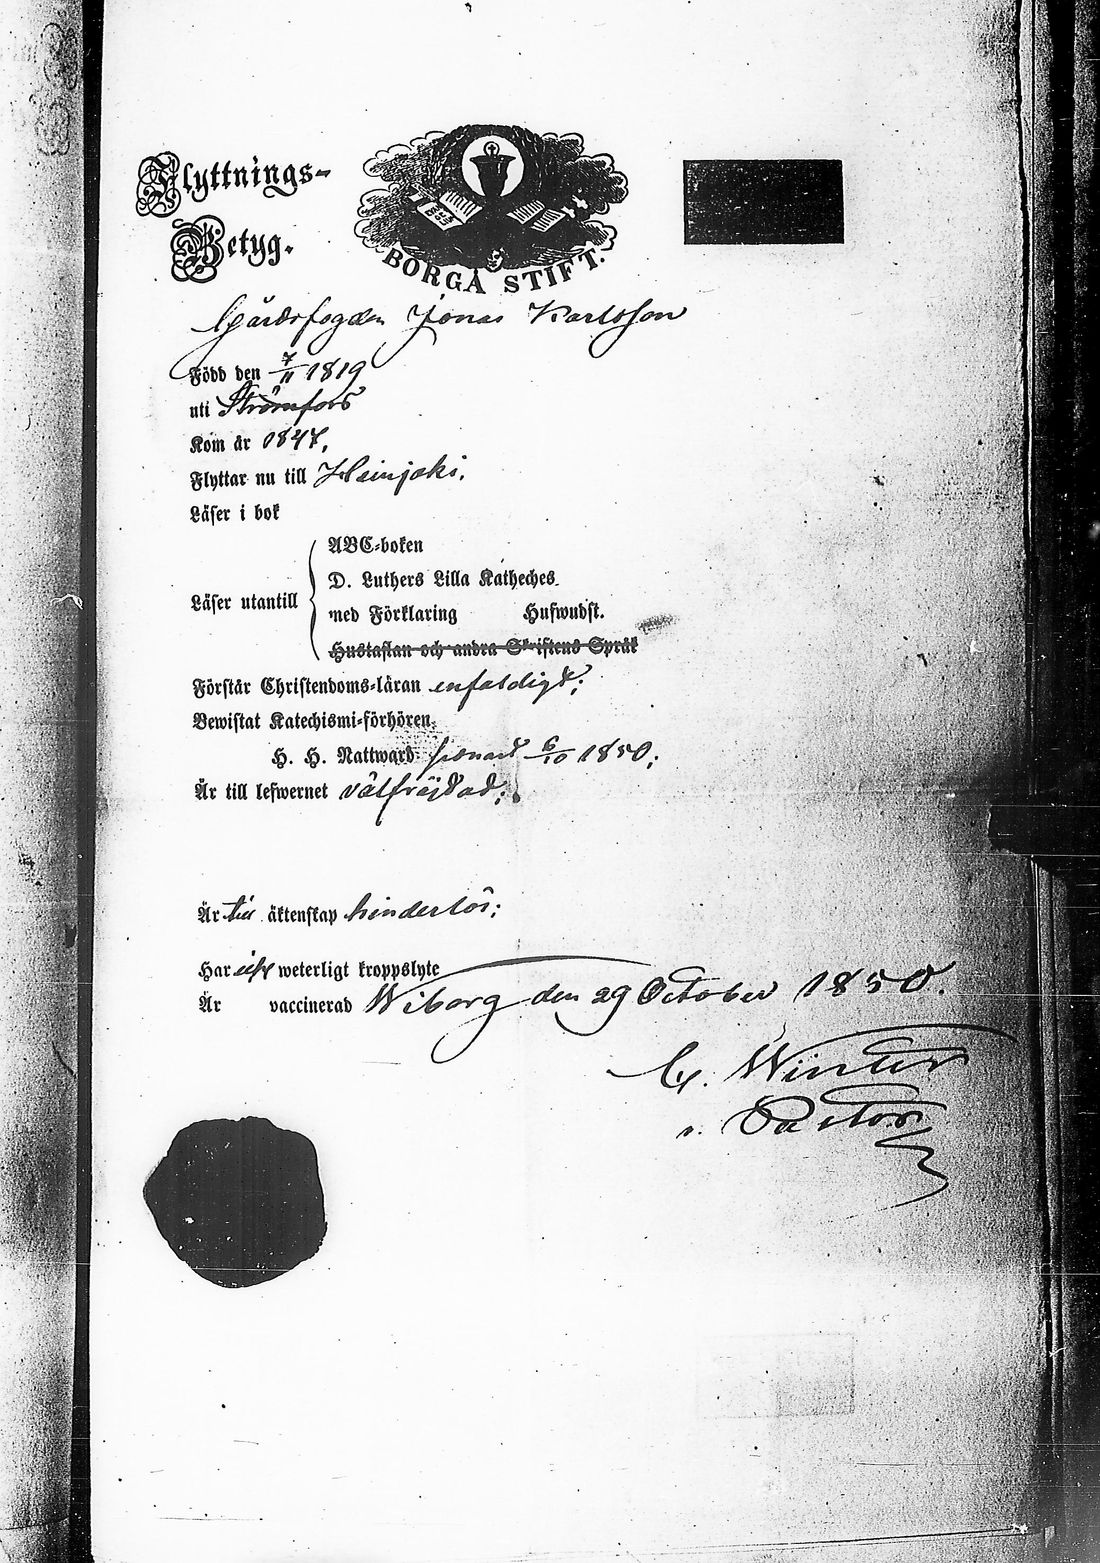 Flyttnings-
Betyg.
BORGÅ STIFT.
Gårdsfogden Jonas Karlsson
Född den 7/11 1819
uti Strömfors
Kom år 1847,
Flyttar nu till Heinjoki.
Läser i bok
ABC-boken
D. Luthers Lilla Katheches.
Läser utantill
med Förklaring Hufwudst.
Hustaflan och andra Skriftens Språk
Förstår Christendoms-läran enfaldigt;
Bewistat Katechismi-förhören
H. H. Nattward senast 6/10 1850;
Är till lefwernet välfrejdad;
Är till äktenskap hinderlös;
Har icke weterligt kroppslyte
Är vaccinerad Wiborg den 29 October 1850.
G. Winter
v. Pastor